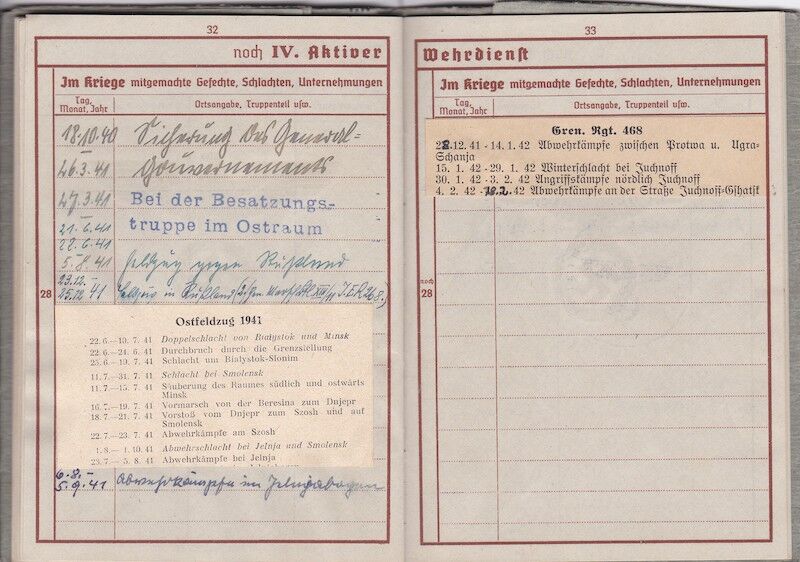 32
noch IV. Aktiver
Im Kriege mitgemachte Gefechte, Schlachten, Unternehmungen
Tag, Monat, Jahr
Ortsangabe, Truppenteil usw.
18.10.40 Sicherung des General=
26.3.41 Gouvernements
27.3.41 Bei der Besatzungs-
21.6.41 truppe im Ostraum
22.6.41
5.8.41 Feldzug gegen Rußland
23.12.–
28 25.12.41 in Rußland
Ostfeldzug 1941
22.6.—10.7.41 Doppelschlacht von Bialystok und Minsk
22.6.—24.6.41 Durchbruch durch die Grenzstellung
25.6.—10.7.41 Schlacht um Bialystok-Slonim
11.7.—31.7.41 Schlacht bei Smolensk
11.7.—15.7.41 Säuberung des Raumes südlich und ostwärts
Minsk
16.7.—19.7.41 Vormarsch von der Beresina zum Dnjepr
18.7.—21.7.41 Vorstoß vom Dnjepr zum Szosh und auf
Smolensk
22.7.—23.7.41 Abwehrkämpfe am Szosh
1.8.—1.10.41 Abwehrschlacht bei Jelnja und Smolensk
23.7.—5.8.41 Abwehrkämpfe bei Jelnja
6.8.–
5.9.41 Abwehrkämpfe im Jelnjabogen
33
Wehrdienst
Im Kriege mitgemachte Gefechte, Schlachten, Unternehmungen
Tag, Monat, Jahr
Ortsangabe, Truppenteil usw.
Gren. Rgt. 468
28.12.41 - 14.1.42 Abwehrkämpfe zwischen Protwa u. Ugra-
Schanja
15.1.42 - 29.1.42 Winterschlacht bei Juchnoff
30.1.42 - 3.2.42 Angriffskämpfe nördlich Juchnoff
4.2.42 - 18.2.42 Abwehrkämpfe an der Straße Juchnoff-Gshatsk
noch
28